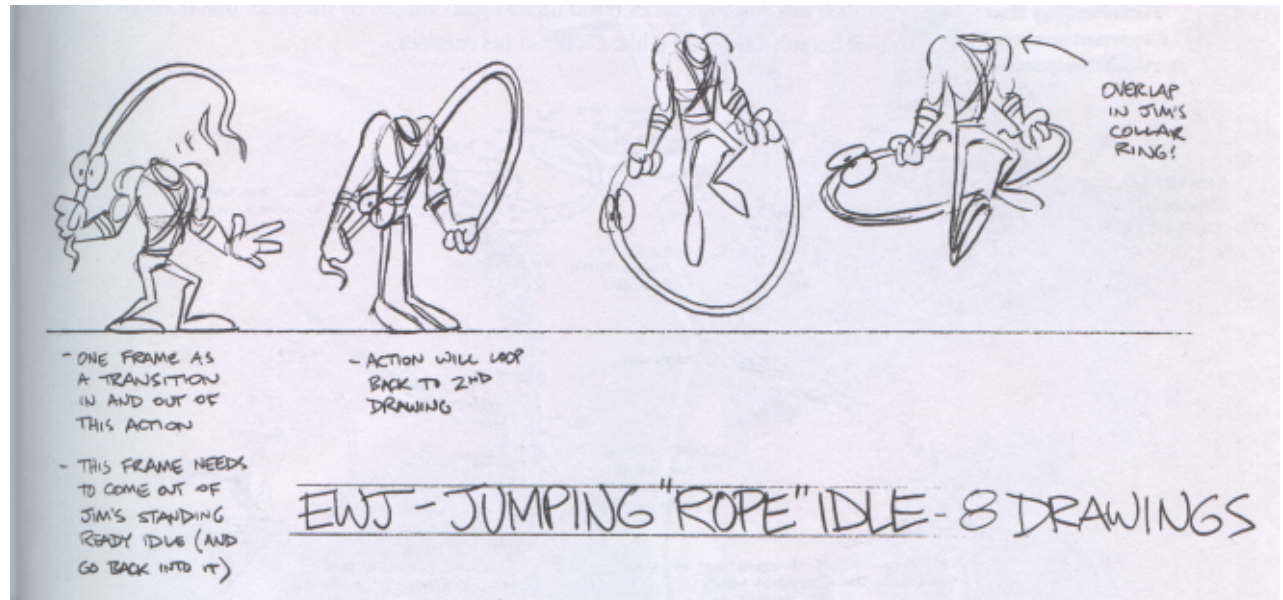 OVERLAP
IN JIM'S
COLLAR
RING!
- ONE FRAME AS
A TRANSITION
IN AND OUT OF
THIS ACTION
- THIS FRAME NEEDS
TO COME OUT OF
JIM'S STANDING
READY IDLE (AND
GO BACK INTO IT)
- ACTION WILL LOOP
BACK TO 2ND
DRAWING
EWJ - JUMPING "ROPE" IDLE - 8 DRAWINGS